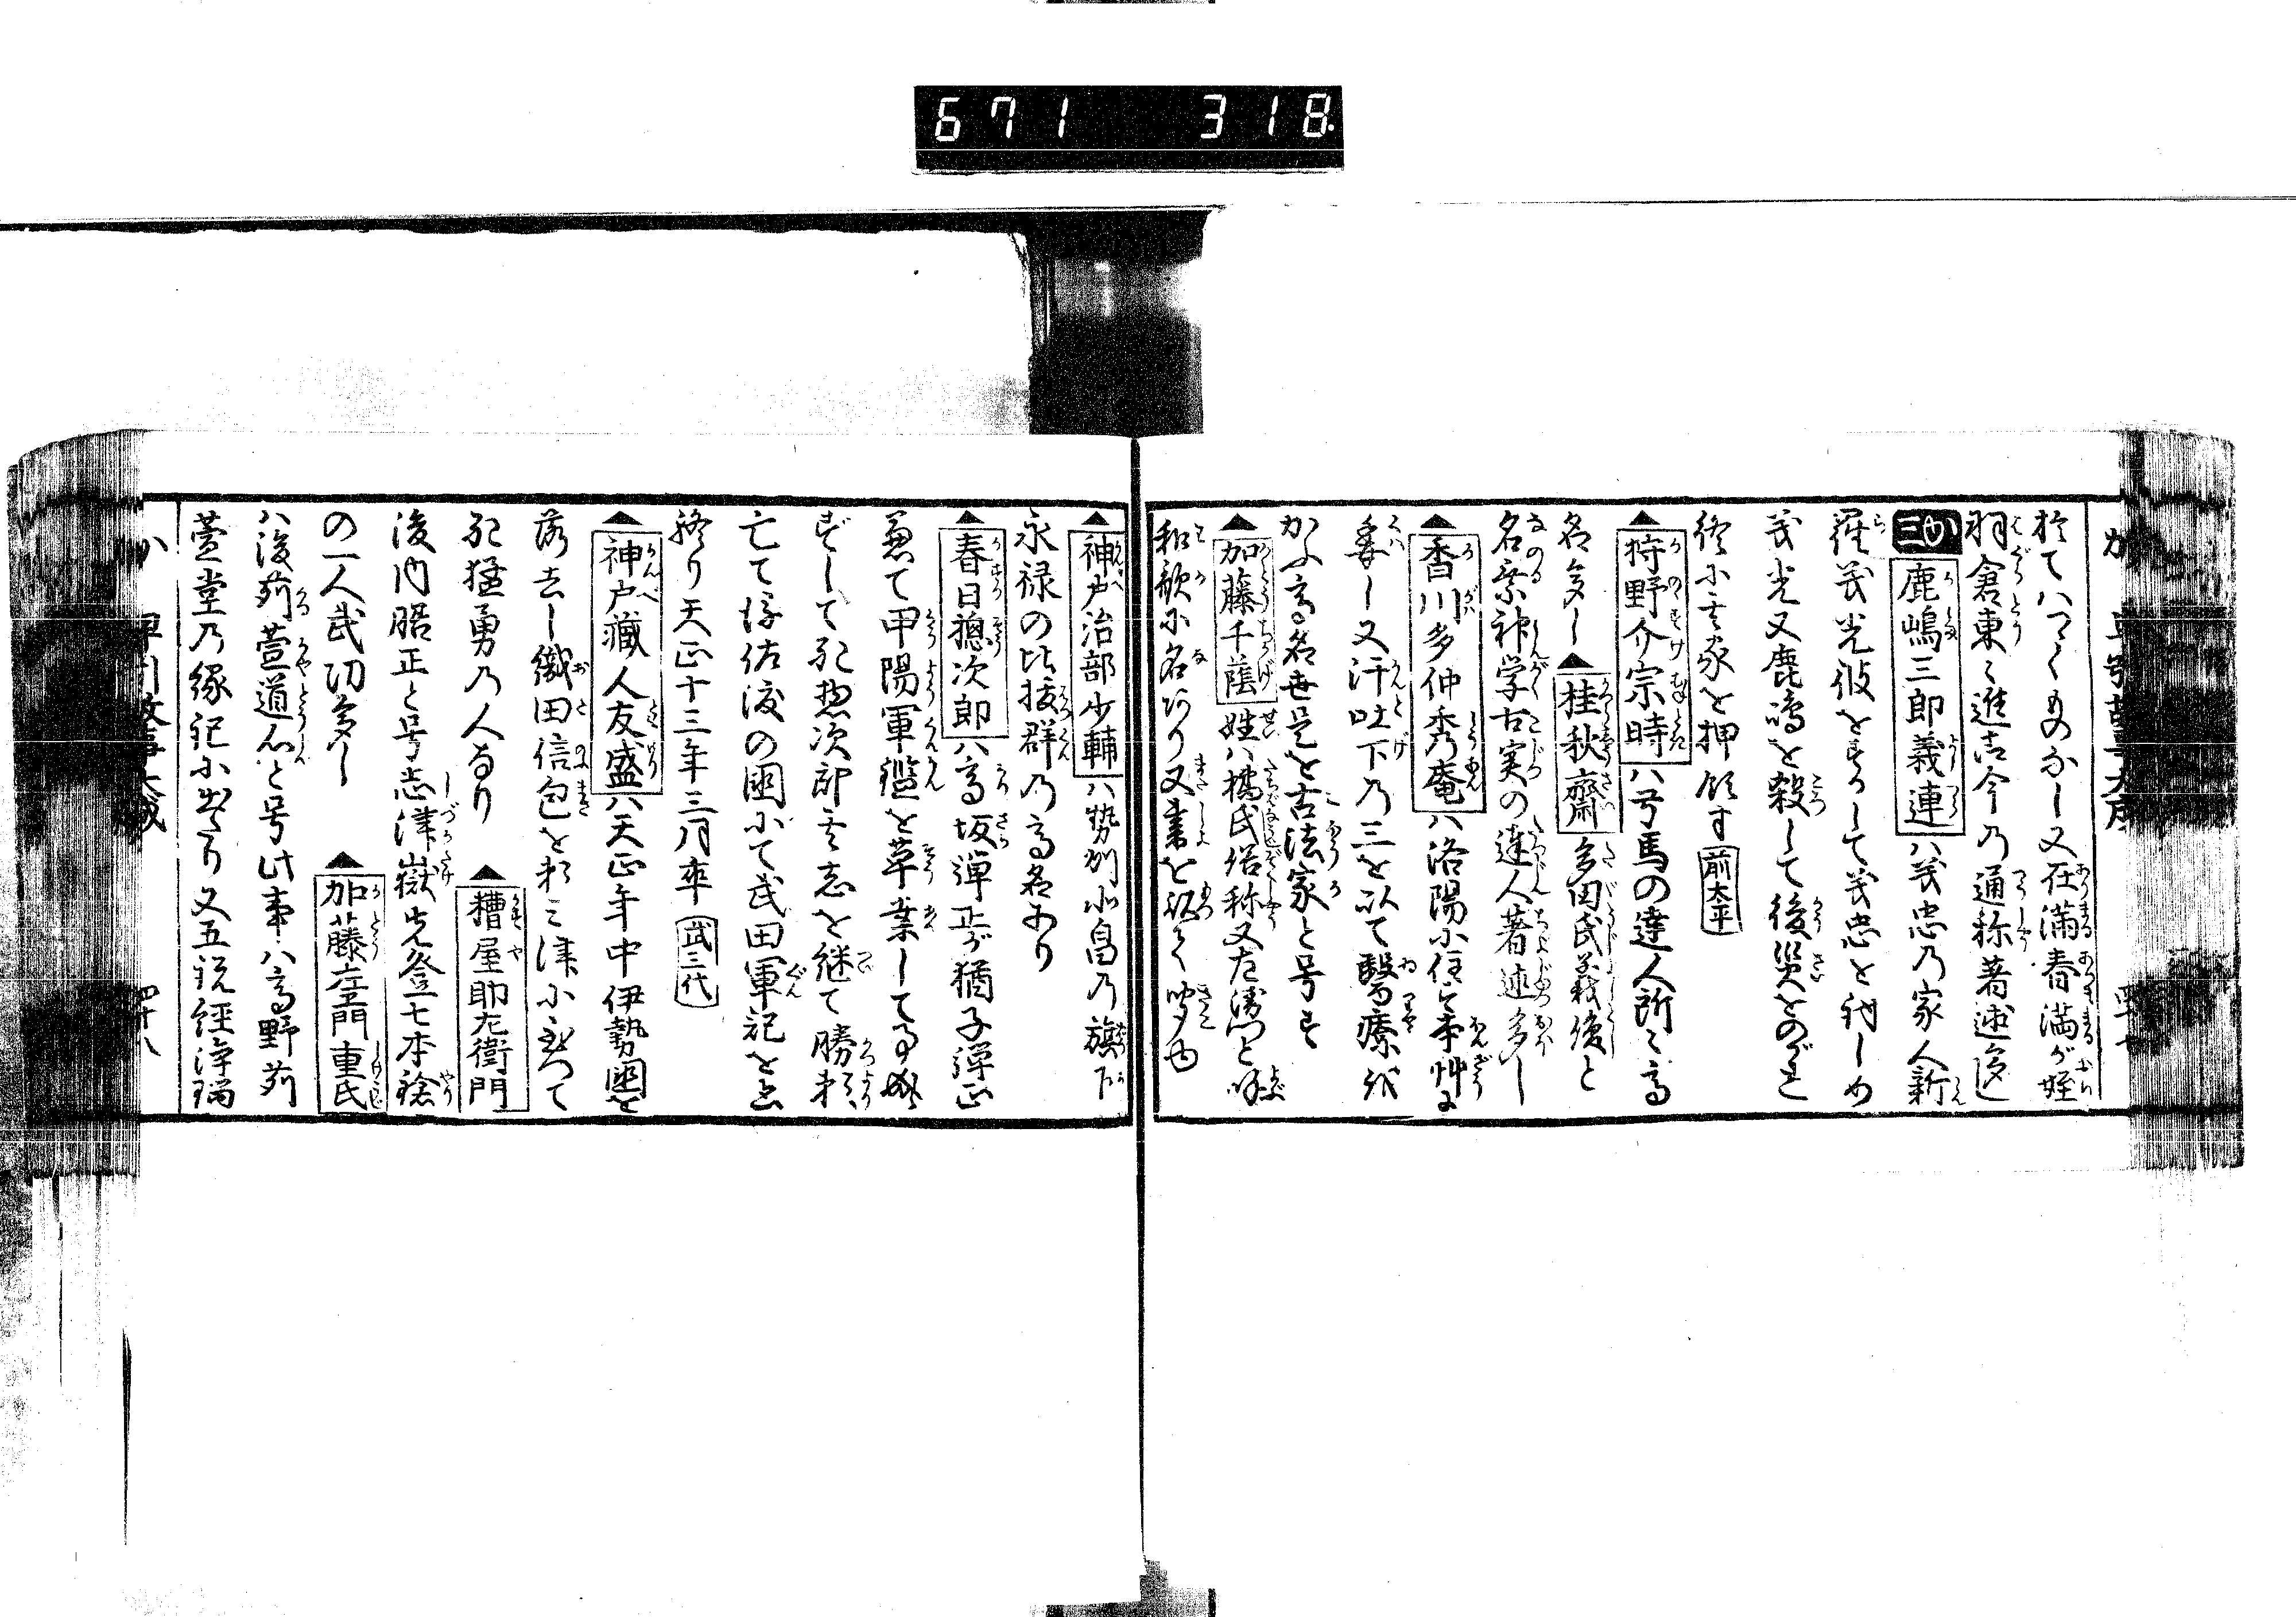 671 318
於てハつくものなし又在満春満が姪
羽倉東之進古今の通称著述多
三か 鹿嶋三郎義連ハ義忠乃家人新
羅義光彼をそゝのかして義忠を討しめ
義光又鹿嶋を殺して後災をのがれ
終に其家を押領す 前太平
▲狩野介宗時ハ弓馬の達人所々高
名多し▲桂秋齋 多田氏義俊と
名乗神学古実の達人著述多し
▲香川多仲秀庵ハ洛陽に住し本艸に
委し又汗吐下乃三を以て醫療
かふ高名世是を古法家と号す
▲加藤千蔭 姓ハ橘氏俗称又左衛門と呼
和歌に名あり又書を
▲神戸治部少輔ハ勢州北畠乃旗下
永禄の比抜群乃高名あり
▲春日惣次郎ハ高坂弾正が猶子弾正
兼て甲陽軍鑑を草業して事終
ずして死惣次郎其志を継て勝頼
亡て後佐渡の國にて武田軍記を書
終り天正十三年三月卒 武三代
▲神戸藏人友盛ハ天正年中伊勢國を
落去し織田信包を頼ミ津に至つて
死猛勇乃人なり ▲糟屋助左衛門
後内膳正と号志津嶽先登七本鎗
の一人武功多し ▲加藤左衛門重氏
ハ後苅萱道心と号此事ハ高野苅
萱堂乃縁記に出たり又五説経浄瑠
か 早引故事大成 四十八